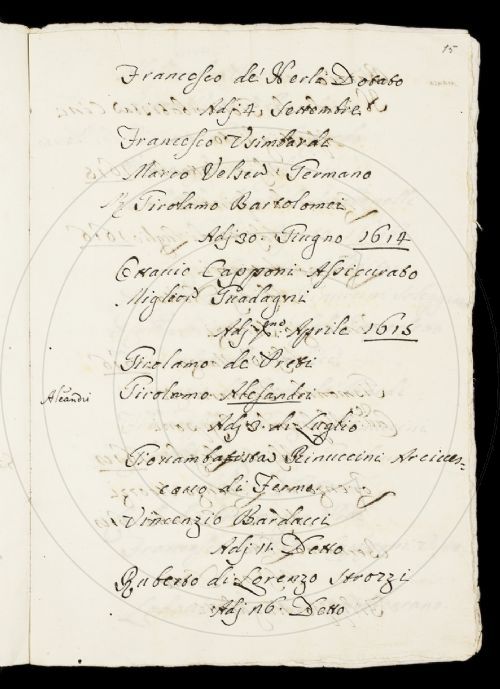 15
Francesco de' Nerli Dorato
Adj 4. Settembre
Francesco Usimbardi
Marco Velser Germano
Girolamo Bartolomei
Adj 30. Giugno 1614
Ottavio Capponi Assicurato
Miglior Guadagni
Adj Pmo. Aprile 1615
Girolamo de Preti
Aleandri
Girolamo Alesandri
Adj 3. di Luglio
Giovambatista Rinuccini Arcives=
covo di Fermo
Vincenzio Barducci
Adj 11. Detto
Ruberto di Lorenzo Strozzi
Adj 16. Detto